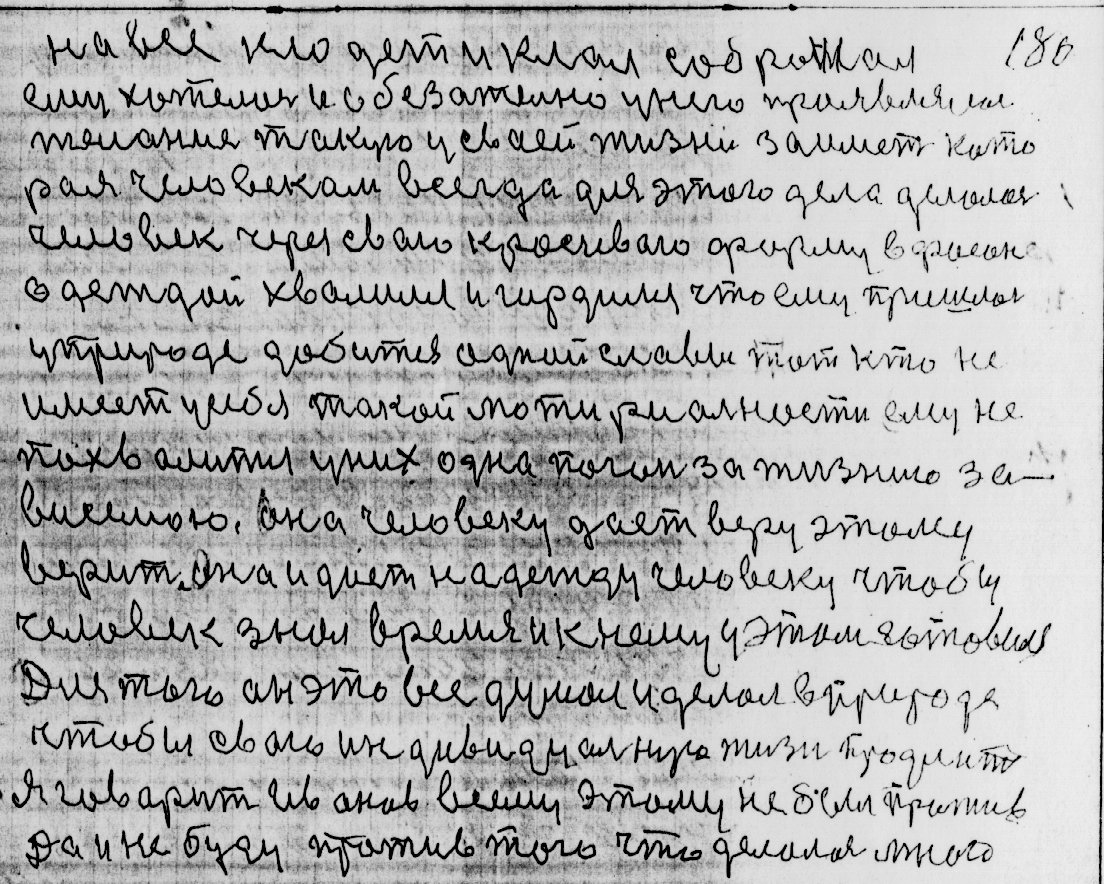 180
на все кло дет и клал сображал
ему хотелоя и обезателно унего праявлялся
желание такую усваей жизни заимет като
рая человекам всегда для этого дела делолоя
человек через сваю красеваю форму вфасоне
одеждой хвалилея и гардился что ему пришлоя
уприроде добится аднаей славы тот кто не
имеет усебя такой мотириалности ему не
похвалится уних одна погоня за жизнию за-
висемою. она человеку дает веру этому
верит. Она и дает надежду человеку чтобы
человек знал время и кнему уэтом готовился
Для того он это все думал и делал вприроде
чтобы сваю индивидуалную жизн продлит
Я говарит Иванов всему этому не был против
Да и не буду против того что делолоя много